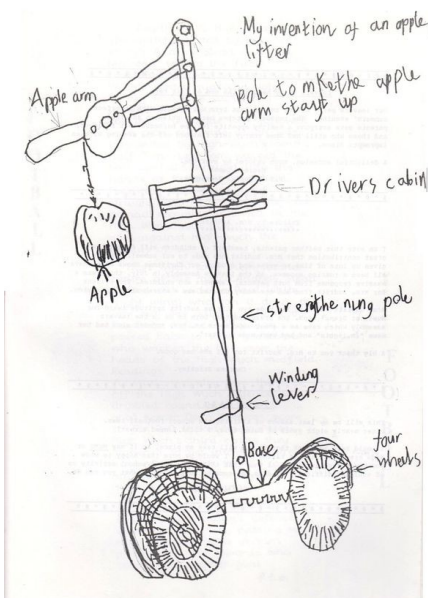 My invention of an apple
lifter
Apple arm
pole to mkethe apple
arm stayt up
Drivers cabin
Apple
strengthe nung pole
winding
lever
Base
four
wheels